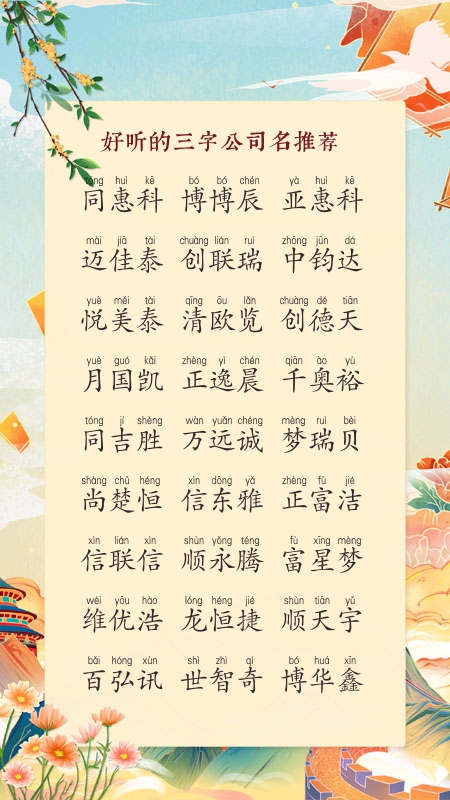 好听的三字公司名推荐
tóng huì kē bó bó chén yà huì kē
同惠科 博博辰 亚惠科
mài jiā tài chuàng lián ruì zhōng jūn dá
迈佳泰 创联瑞 中钧达
yuè měi tài qīng ōu lǎn chuàng dé tiān
悦美泰 清欧览 创德天
yuè guó kǎi zhèng yì chén qiān ào yù
月国凯 正逸晨 千奥裕
tóng jí shèng wàn yuǎn chéng mèng ruì bèi
同吉胜 万远诚 梦瑞贝
shàng chǔ héng xìn dōng yǎ zhèng fù jié
尚楚恒 信东雅 正富洁
xìn lián xìn shùn yǒng téng fù xīng mèng
信联信 顺永腾 富星梦
wéi yōu hào lóng héng jié shùn tiān yǔ
维优浩 龙恒捷 顺天宇
bǎi hóng xùn shì zhì qí bó huá xīn
百弘讯 世智奇 博华鑫